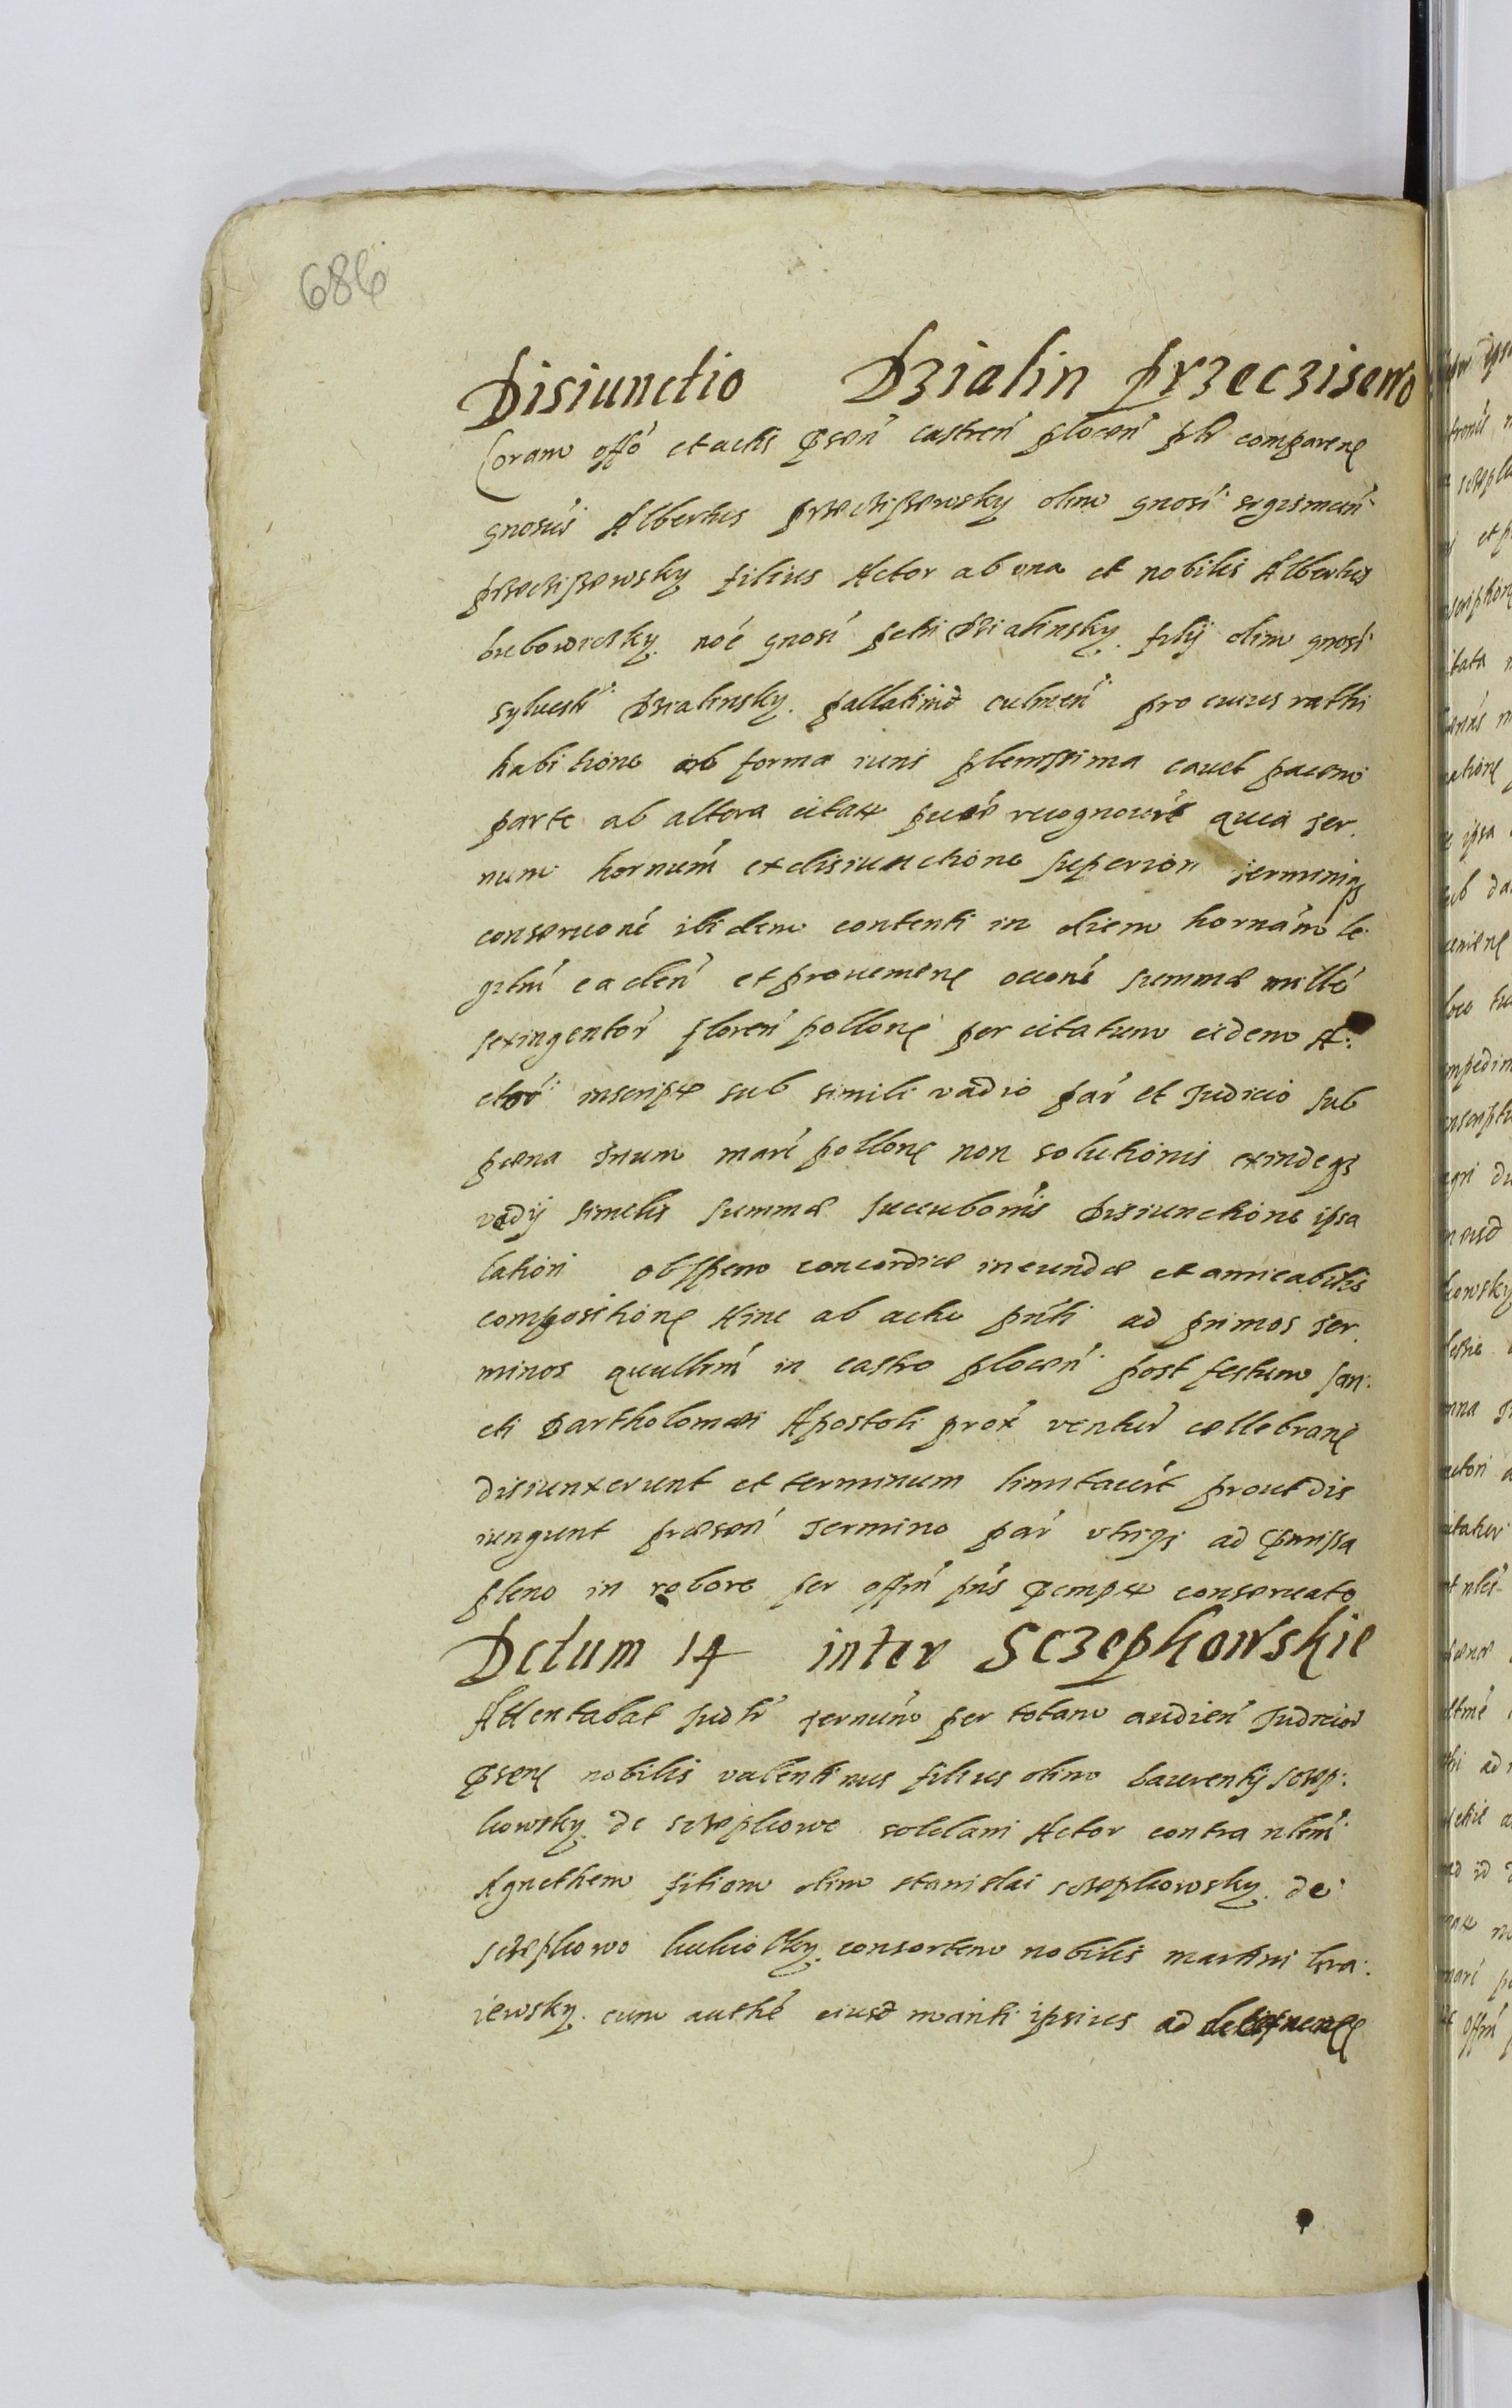 686
Disiunctio Dzialin Przecziseṽo
Coram offõ et actis p̃sen̄ castren̄ plocen̄ plr̃ comparen̄
gnosus Albertus przeczissewsky olim gnosi sigismun̄
przeczissewsky filius Actor ab vna et nobilis Albertus
buboviczky noẽ gnosi petri Dzialinsky filÿ olim gnosi
syluestri Dzialinsky pallatinid culmen̄ pro cuius rathi
habitione sub forma iuris plenissima cavet pacem
parte ab altera citatus recognouerũt quia Ter
num hornum ex disiunctione superiori Terminiqz
conseruoñe ibidem contenti in diem hornam le
gitm̃ caden̄ et prouenien̄ occoñe summæ mille
sexingentor̄ floren̄ pollon̄ per citatum eidem A:
ctori inscriptæ sub simili vadio par̄ et Judicio sub
pæna Trium marc̄ pollon̄ non solutionis exindeqz
vadÿ similis summæ succubonis Disiunctione ipsa
lation ob spem concordiæ ineundæ et amicabilis
composition̄ Hinc ab actu pñti ad primos Ter
minos quulbm̃ in castro plocen̄ post festum san:
cti Bartholomæi Apostoli prox̄ ventur̄ cællebran̄
disiunxerunt et terminum limitauerũt prout dis
iungunt præsen̄ Termino par̄ vtriqz ad p̃missa
pleno in robore per offm̃ pñs p̃emptæ conseruato
Dctum 14 inter Sczepkowskie
Attentabat Judlr̃ Ternum̃ per totam audien̄ Judicior̄
p̃sen̄ nobilis valentinus filius olim laurentÿ sczep:
kowsky de sczepkowo soldani Actor contra nlem̃
Agnethem filiam olim stanislai sczepkowsky de
sczepkowo kukiolky consortem nobilis martini kra:
iewsky cum authẽ eiusd mariti ipsius ad